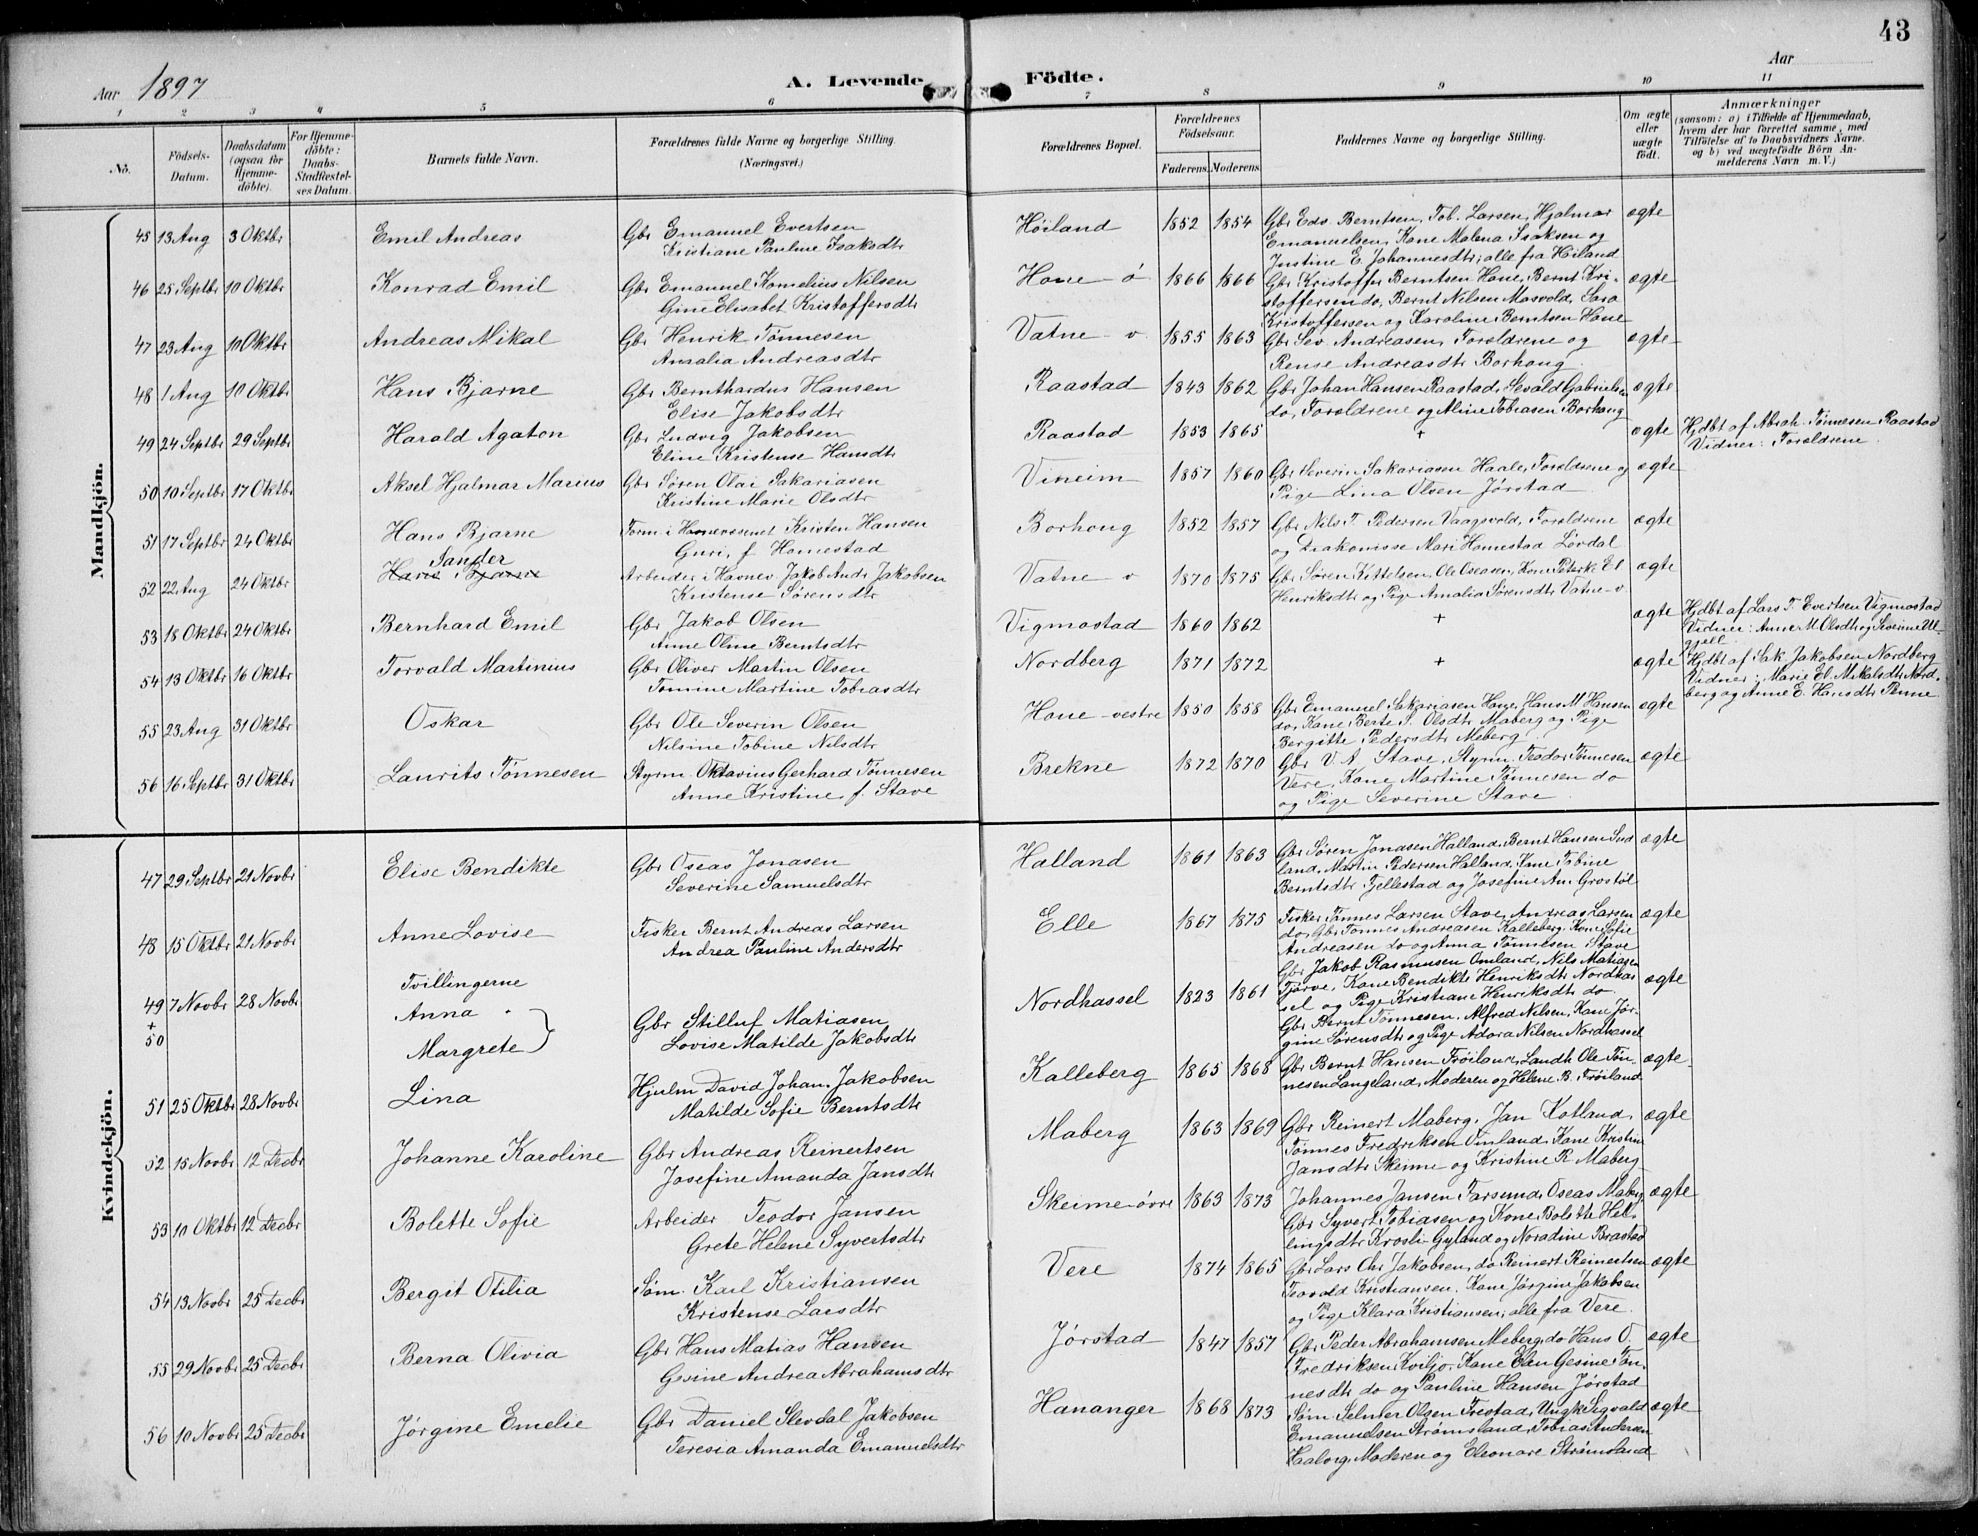 43
Aar 1897
A. Levende Födte.
Aar
1 2 3 4 5 6 7 8 9 10 11
No.
Födsels-Datum.
Daabsdatum (ogsaa for Hjemme-döbte).
For Hjemme-döbte: Daabs-Stadfæstel-ses Datum.
Barnets fulde Navn.
Forældrenes fulde Navne og borgerlige Stilling (Næringsvei.)
Forældrenes Bopæl.
Forældrenes Födselsaar.
Faderens. Moderens.
Faddernes Navne og borgerlige Stilling.
Om ægte eller uægte födt.
Anmærkninger
(saasom: a) i Tilfælde af Hjemmedaab,
hvem der har forrettet samme, med
Tilföielse af to Daabsvidners Navne.
og b) ved uægtefödte Börn An-
melderens Navn m. V.)
Mandkjön.
45 13 Aug 3 Oktbr Emil Andreas Gbr Emanuel Evertsen Höiland 1852 1854 Gbr Edv. Berntsen, Tob. Larsen, Hjalmar ægte
Kristiane Pauline Isaksdtr Emanuelsen, Kone Malena Isaksen og
Justine E. Johannesdtr, alle fra Höiland
46 25 Septbr 10 Oktbr Konrad Emil Gbr Emanuel Kornelius Nilsen Hone - ö 1866 1866 Gbr Kristoffer Berntsen Hone, Bernt Kri- ægte
Gine Elisabet Kristoffersdtr stoffersen do, Bernt Nilsen Mosvold, Sara
Kristoffersen og Karoline Berntsen Hone
47 23 Aug 10 Oktbr Andreas Mikal Gbr Henrik Tönnesen Vatne - v 1855 1863 Gbr Sev. Andreasen, Forældrene og ægte
Amalia Andreasdtr Rense Andreasdtr Borhaug
48 1 Aug 10 Oktbr Hans Bjarne Gbr Bernthardus Hansen Raastad 1843 1862 Gbr Johan Hansen Raastad, Sevald Gabrielsen ægte
Elise Jakobsdtr do, Forældrene og Aline Tobiasen Borhaug
49 24 Septbr 29 Septbr Harald Agaton Gbr Ludvig Jakobsen Raastad 1853 1865 + ægte Hjdbt af Abrah. Tönnesen Raastad
Eline Kristense Hansdtr Vidner: Forældrene.
50 10 Septbr 17 Oktbr Aksel Hjalmar Marius Gbr Sören Olai Sakariasen Vineim 1857 1860 Gbr Severin Sakariasen Haale, Forældrene og ægte
Kristine Marie Olsdtr Pige Lina Olsen Jørstad
51 17 Septbr 24 Oktbr Hans Bjarne Form. i Havnevæsenet Kristen Hansen Borhaug 1852 1857 Gbr Nils T. Pedersen Vaagsvold, Forældrene ægte
Guri, f. Homestad og Diakonisse Mari Homestad Lördal
52 22 Aug 24 Oktbr Hans Bjarne Sander Arbeider i Havnev. Jakob Andr. Jakobsen Vatne v 1870 1875 Gbr Sören Kittelsen, Ole Oseasen, Kone Peterke El. ægte
Kristense Sörensdtr Henriksdtr og Pige Amalia Sörensdtr Vatne-v.
53 18 Oktbr 24 Oktbr Bernhard Emil Gbr Jakob Olsen Vigmostad 1860 1862 + ægte Hjdbt af Lars T. Evertsen Vigmostad
Anne Oline Berntsdtr Vidner: Anne M Olsdtr og Severine Ul-
gjell
54 13 Oktbr 16 Oktbr Torvald Martinius Gbr Oliver Martin Olsen Nordberg 1871 1872 + ægte Hjdbt af Sak. Jakobsen Nordberg
Tomine Martine Tobiasdtr Vidner: Marie El. Mikalsdtr Nord-
berg og Anne E. Hansdtr Penne
55 23 Aug 31 Oktbr Oskar Gbr Ole Severin Olsen Hone - vestre 1850 1858 Gbr Emanuel Sakariasen Hone, Hans M Hansen ægte
Nilsine Tobine Nilsdtr do, Kone Berte S. Olsdtr Maberg og Pige
Bergitte Pedersdtr Meberg
56 16 Septbr 31 Oktbr Laurits Tönnesen Styrm. Oktavius Gerhard Tönnesen Brekne 1872 1870 Gbr V. A. Stave, Styrm. Teodor Tönnesen ægte
Anne Kristine, f. Stave Vere, Kone Martine Tönnesen do
og Pige Severine Stave.
Kvindekjön.
47 29 Septbr 21 Novbr Elise Bendikte Gbr Oseas Jonasen Halland 1861 1863 Gbr Sören Jonasen Halland, Bernt Hansen Sud ægte
Severine Samuelsdtr land, Martin Pedersen Halland, Kone Tobine
Berntsdtr Fjellestad og Josefine An. Grostöl
48 15 Oktbr 21 Novbr Anne Lovise Fisker Bernt Andreas Larsen Elle 1867 1875 Fisker Tönnes Larsen Stave, Andreas Larsen ægte
Andrea Pauline Andersdtr do, Gbr Tönnes Andreasen Kalleberg, Kone Sofie
Andreasen do og Anna Tönnesen Stave
49 + 50 7 Novbr 28 Novbr Tvillingerne Anna Margrete } Gbr Stilluf Matiasen Nordhassel 1823 1861 Gbr Jakob Rasmusen Omland, Nils Matiasen ægte
Lovise Matilde Jakobsdtr Tjörve, Kone Bendikte Henriksdtr Nordhas
sel og Pige Kristiane Henriksdtr do.
Gbr Bernt Tönnesen, Alfred Nilsen, Kone Jör-
gine Sörensdtr og Pige Adora Nilsen Nordhassel
51 25 Oktbr 28 Novbr Lina Hjulm David Johan Jakobsen Kalleberg 1865 1868 Gbr Bernt Hansen Fröiland, Landh. Ole Tön- ægte
Matilde Sofie Berntsdtr nesen Langeland, Moderen og Helene B. Fröiland
52 15 Novbr 12 Decbr Johanne Karoline Gbr Andreas Reinertsen Maberg 1863 1869 Gbr Reinert Maberg, Jan Kotland, ægte
Josefine Amanda Jansdtr Tönnes Fredriksen Omland, Kone Kristine
Jansdtr Skeime og Kristine R. Maberg
53 10 Oktbr 12 Decbr Bolette Sofie Arbeider Teodor Jansen Skeime-övre 1863 1873 Johannes Jansen Farsund, Oseas Maberg ægte
Grete Helene Syvertsdtr Gbr Syvert Tobiasen og Kone Bolette Hel-
lingsdtr Krosli Gyland og Noradine Brastad
54 13 Novbr 25 Decbr Bergit Otilia Söm. Karl Kristiansen Vere 1874 1865 Gbr Lars Chr. Jakobsen, do Reinert Reinertsen ægte
Kristense Larsdtr Teovald Kristiansen, Kone Jörgine Jakobsen
og Pige Klara Kristiansen, alle fra Vere.
55 29 Novbr 25 Decbr Berna Olivia Gbr Hans Matias Hansen Jørstad 1847 1857 Gbr Peder Abrahamsen Meberg, do Hans O. ægte
Gesine Andrea Abrahamsdtr Fredriksen Kviljo, Kone Elen Gesine Tön-
nesdtr do og Pauline Hansen Jørstad
56 10 Novbr 25 Decbr Jörgine Emelie Gbr Daniel Slevdal Jakobsen Hananger 1868 1873 Söm. Selmer Olsen Frestad, Ungk Sigvald ægte
Teresia Amanda Emanuelsdtr Emanuelsen Strömsland, Tobias Andersen
Haaborg, Moderen og Eleonare Strömsland